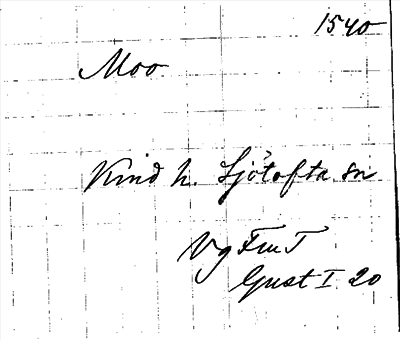 1540
Moo
Kind h. Sjötofta sn
Vg Fru T
Gust I 20